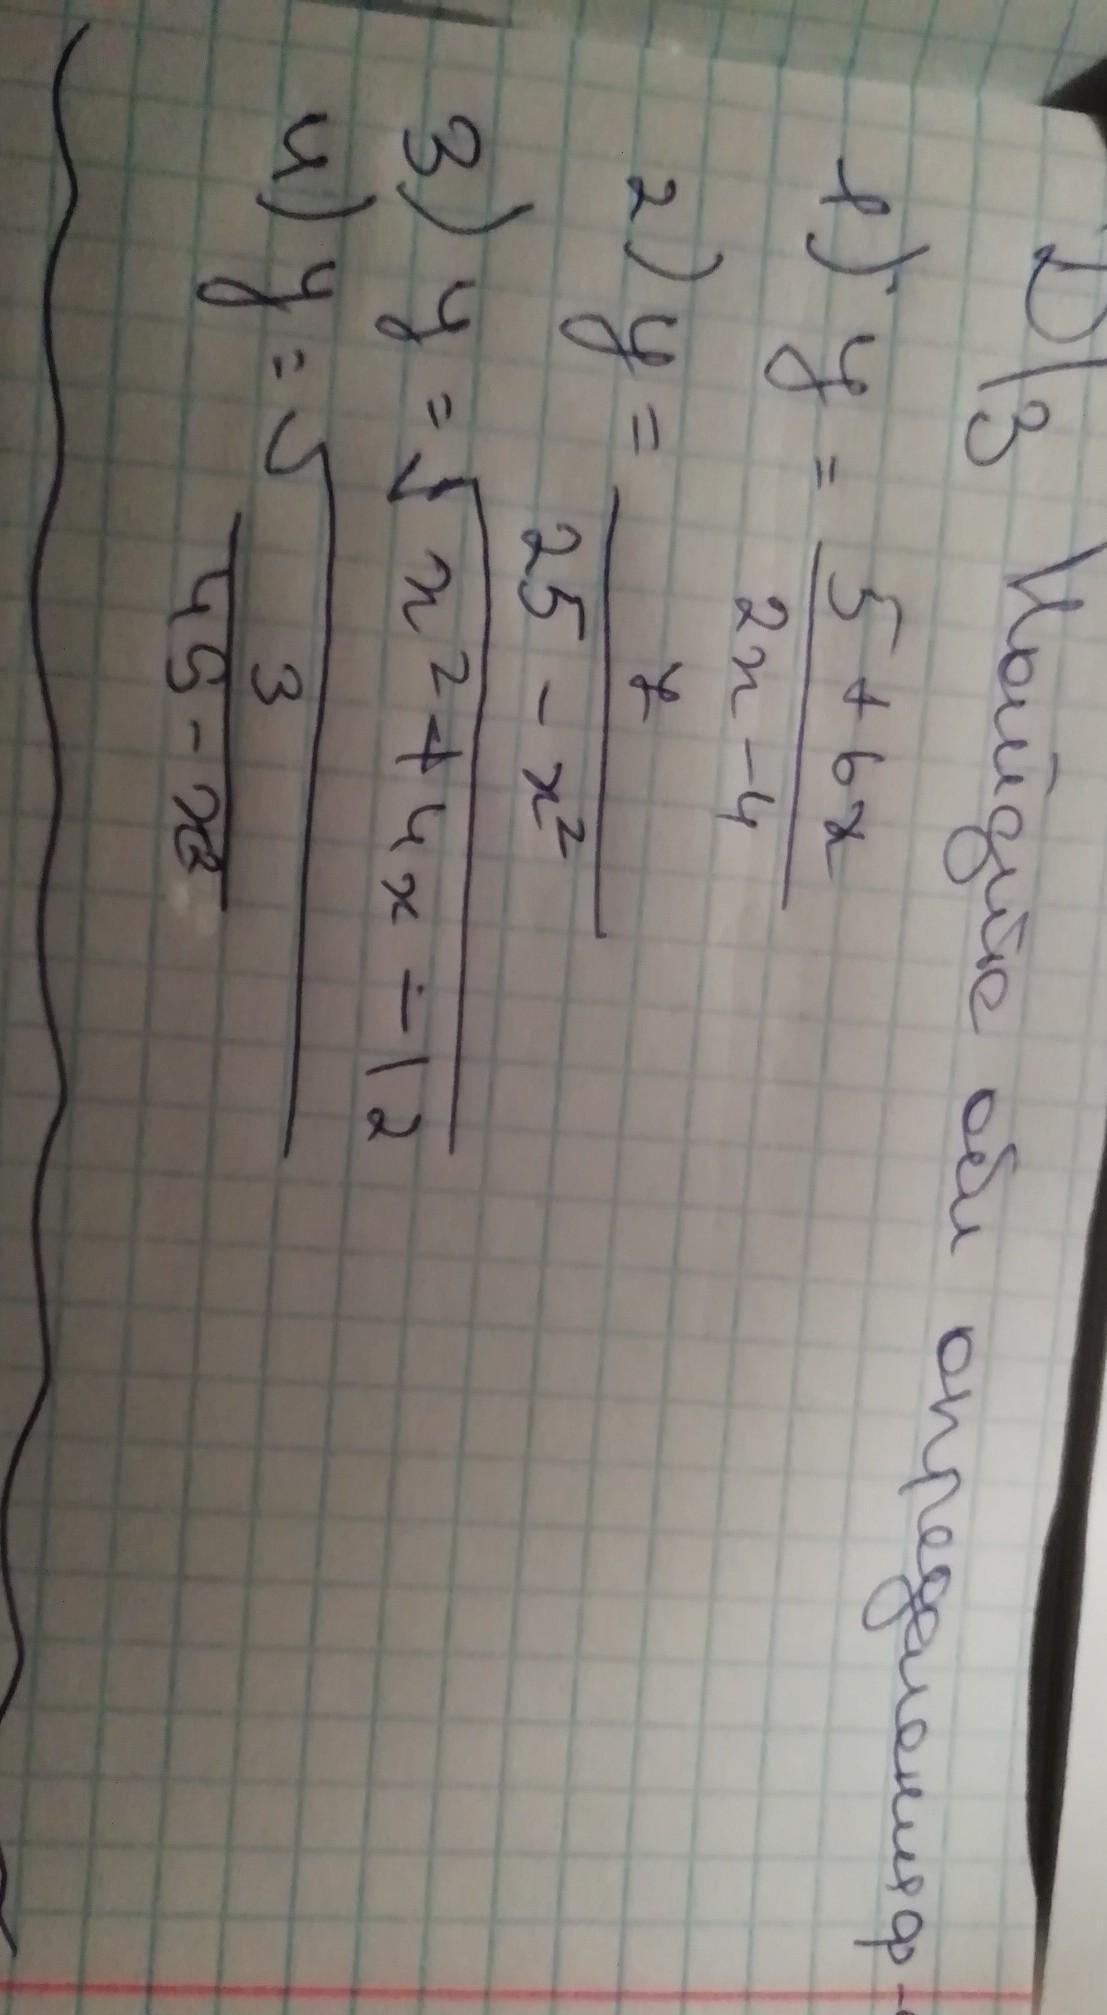 Д/З Найдите обл определения ф-
1) y = 5 + 6x / 2x - 4
2) y = 7 / 25 - x²
3) y = √x² + 4x - 12
4) y = √3 / 49 - x²